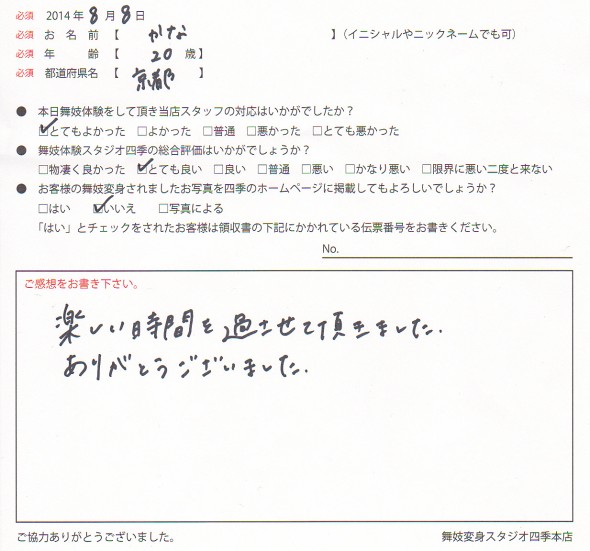 必須 2014年8月8日
必須 お名前【 かな 】(イニシャルやニックネームでも可)
必須 年齢【 20 歳】
必須 都道府県名【 京都 】
● 本日舞妓体験をして頂き当店スタッフの対応はいかがでしたか？
☑とてもよかった □よかった □普通 □悪かった □とても悪かった
● 舞妓体験スタジオ四季の総合評価はいかがでしょうか？
□物凄く良かった ☑とても良い □良い □普通 □悪い □かなり悪い □限界に悪い二度と来ない
● お客様の舞妓変身されましたお写真を四季のホームページに掲載してもよろしいでしょうか？
□はい ☑いいえ □写真による
「はい」とチェックをされたお客様は領収書の下記にかかれている伝票番号をお書きください。
No.
ご感想をお書き下さい。
楽しい時間を過させて頂きました.
ありがとうございました.
ご協力ありがとうございました。 舞妓変身スタジオ四季本店